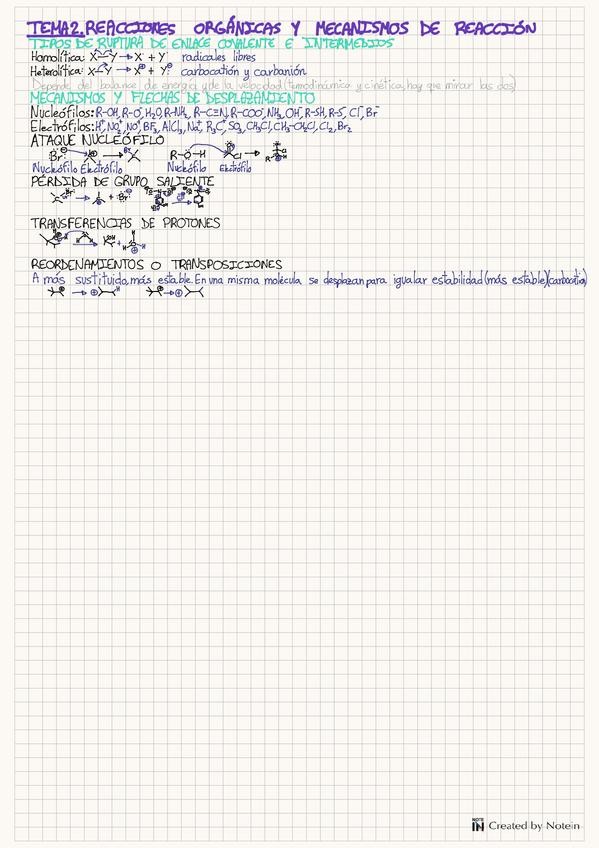 TEMA2. REACCIONES ORGÁNICAS Y MECANISMOS DE REACCIÓN
TIPOS DE RUPTURA DE ENLACE COVALENTE E INTERMEDIOS
Homolítica: X–Y → X· + Y· radicales libres
Heterolítica: X–Y → X⊕ + Y:⊖ carbocatión y carbanión
Depende del balance de energía y de la velocidad (termodinámica y cinética, hay que mirar las dos)
MECANISMOS Y FLECHAS DE DESPLAZAMIENTO
Nucleófilos: R-OH, R-O⁻, H₂O, R-NH₂, R-C≡N, R-COO⁻, NH₃, OH⁻, R-SH, R-S⁻, Cl⁻, Br⁻
Electrófilos: H⁺, NO₂⁺, NO⁺, BF₃, AlCl₃, Na⁺, R₃C⁺, SO₃, CH₃Cl, CH₃-CH₂Cl, Cl₂, Br₂
ATAQUE NUCLEÓFILO
Br R-O-H Cl
Nucleófilo Electrófilo Nucleófilo Electrófilo
PÉRDIDA DE GRUPO SALIENTE
TRANSFERENCIAS DE PROTONES
REORDENAMIENTOS O TRANSPOSICIONES
A más sustituido, más estable. En una misma molécula se desplazan para igualar estabilidad (más estable) (carbocatión)
NOTE IN Created by Notein